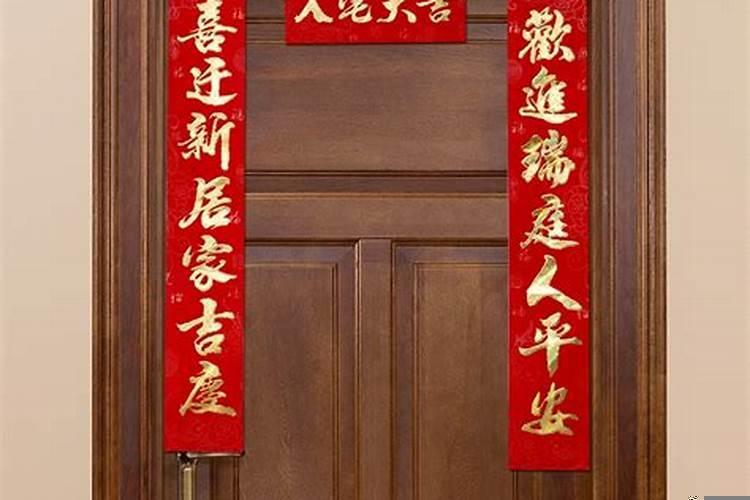 人宅大吉
歡進瑞庭人平安
喜迁新居家吉慶